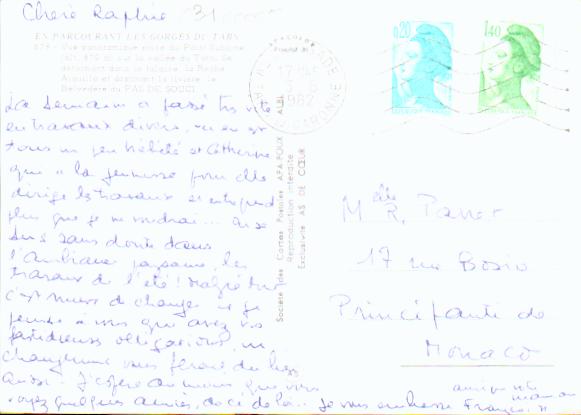 Chère Raphie
EN PARCOURANT LES GORGES DU TARN
879 - Vue panoramique prise du Point Sublime
(alt. 870 m) sur la vallée du Tarn, se
Aiguille et dominant la rivière le
Belvédère du PAS DE SOUCI.
La semaine a passé très vite
en travaux divers, on en est
tous un peu hébété et Catherine
qui a la jeunesse pour elle
dirige les travaux et entreprend
plus que je ne voudrai... On se
sens sans doute dans
l'ambiance paysanne, les
travaux de l'été ! Malgré tout
c'est mieux de changer et je
pense à vous que avez vos
fastidieuses obligations, un
changement vous ferait du bien
aussi. J'espère au moins que vous
voyez quelques amies, de ci de là..
Je vous embrasse
maman
Société des Cartes Postales APA-POUX - ALBI
Reproduction interdite
Exclusivité AS DE CŒUR
17
1982
GARONNE
0,20
1,40
Mlle R.
17 rue Bosio
Principauté de
Monaco